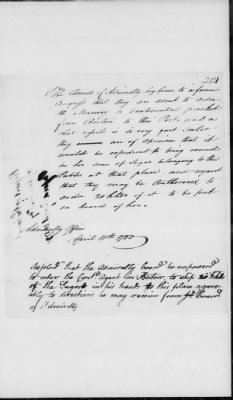 The Board of Admiralty beg leave to inform
Congress that they are about to order
the Mercury a Continental packet
from Boston to this Port, and as
that vessel is a very fast sailer
they are of opinion that it
would be expedient to bring round
in her some of Sugar belonging to the
Public at that place, and request
that they may be Authorised to
order 20 hhds of it to be put
on board of her.
Admiralty Office
April 10th 1780
Resolved That the Admiralty board be empowered
to order the Contl Agent in Boston to ship
of the Sugars in his hands to this place agree-
ably to directions he may receive from sd board
of Admiralty